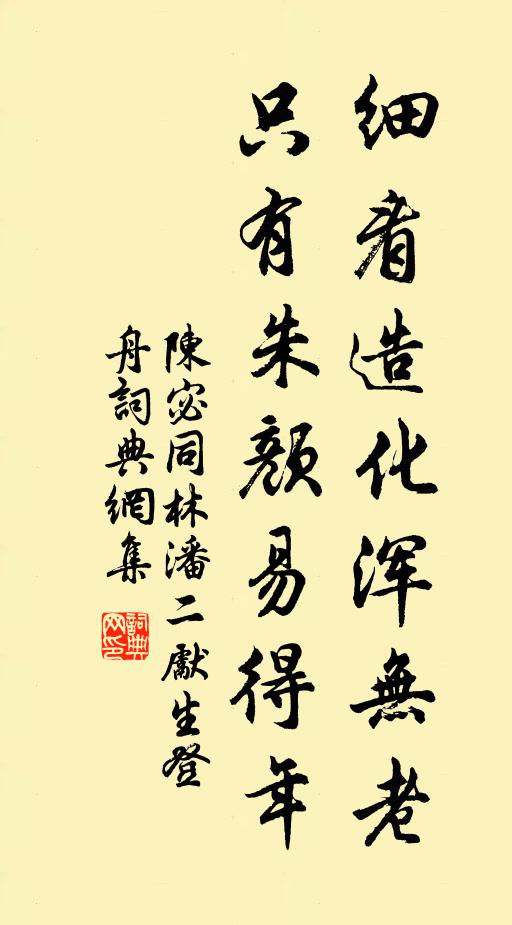 细看造化浑無老
只有朱顔易得年
陳宓同林潘二獻生登
舟詞典網集
詞典网印